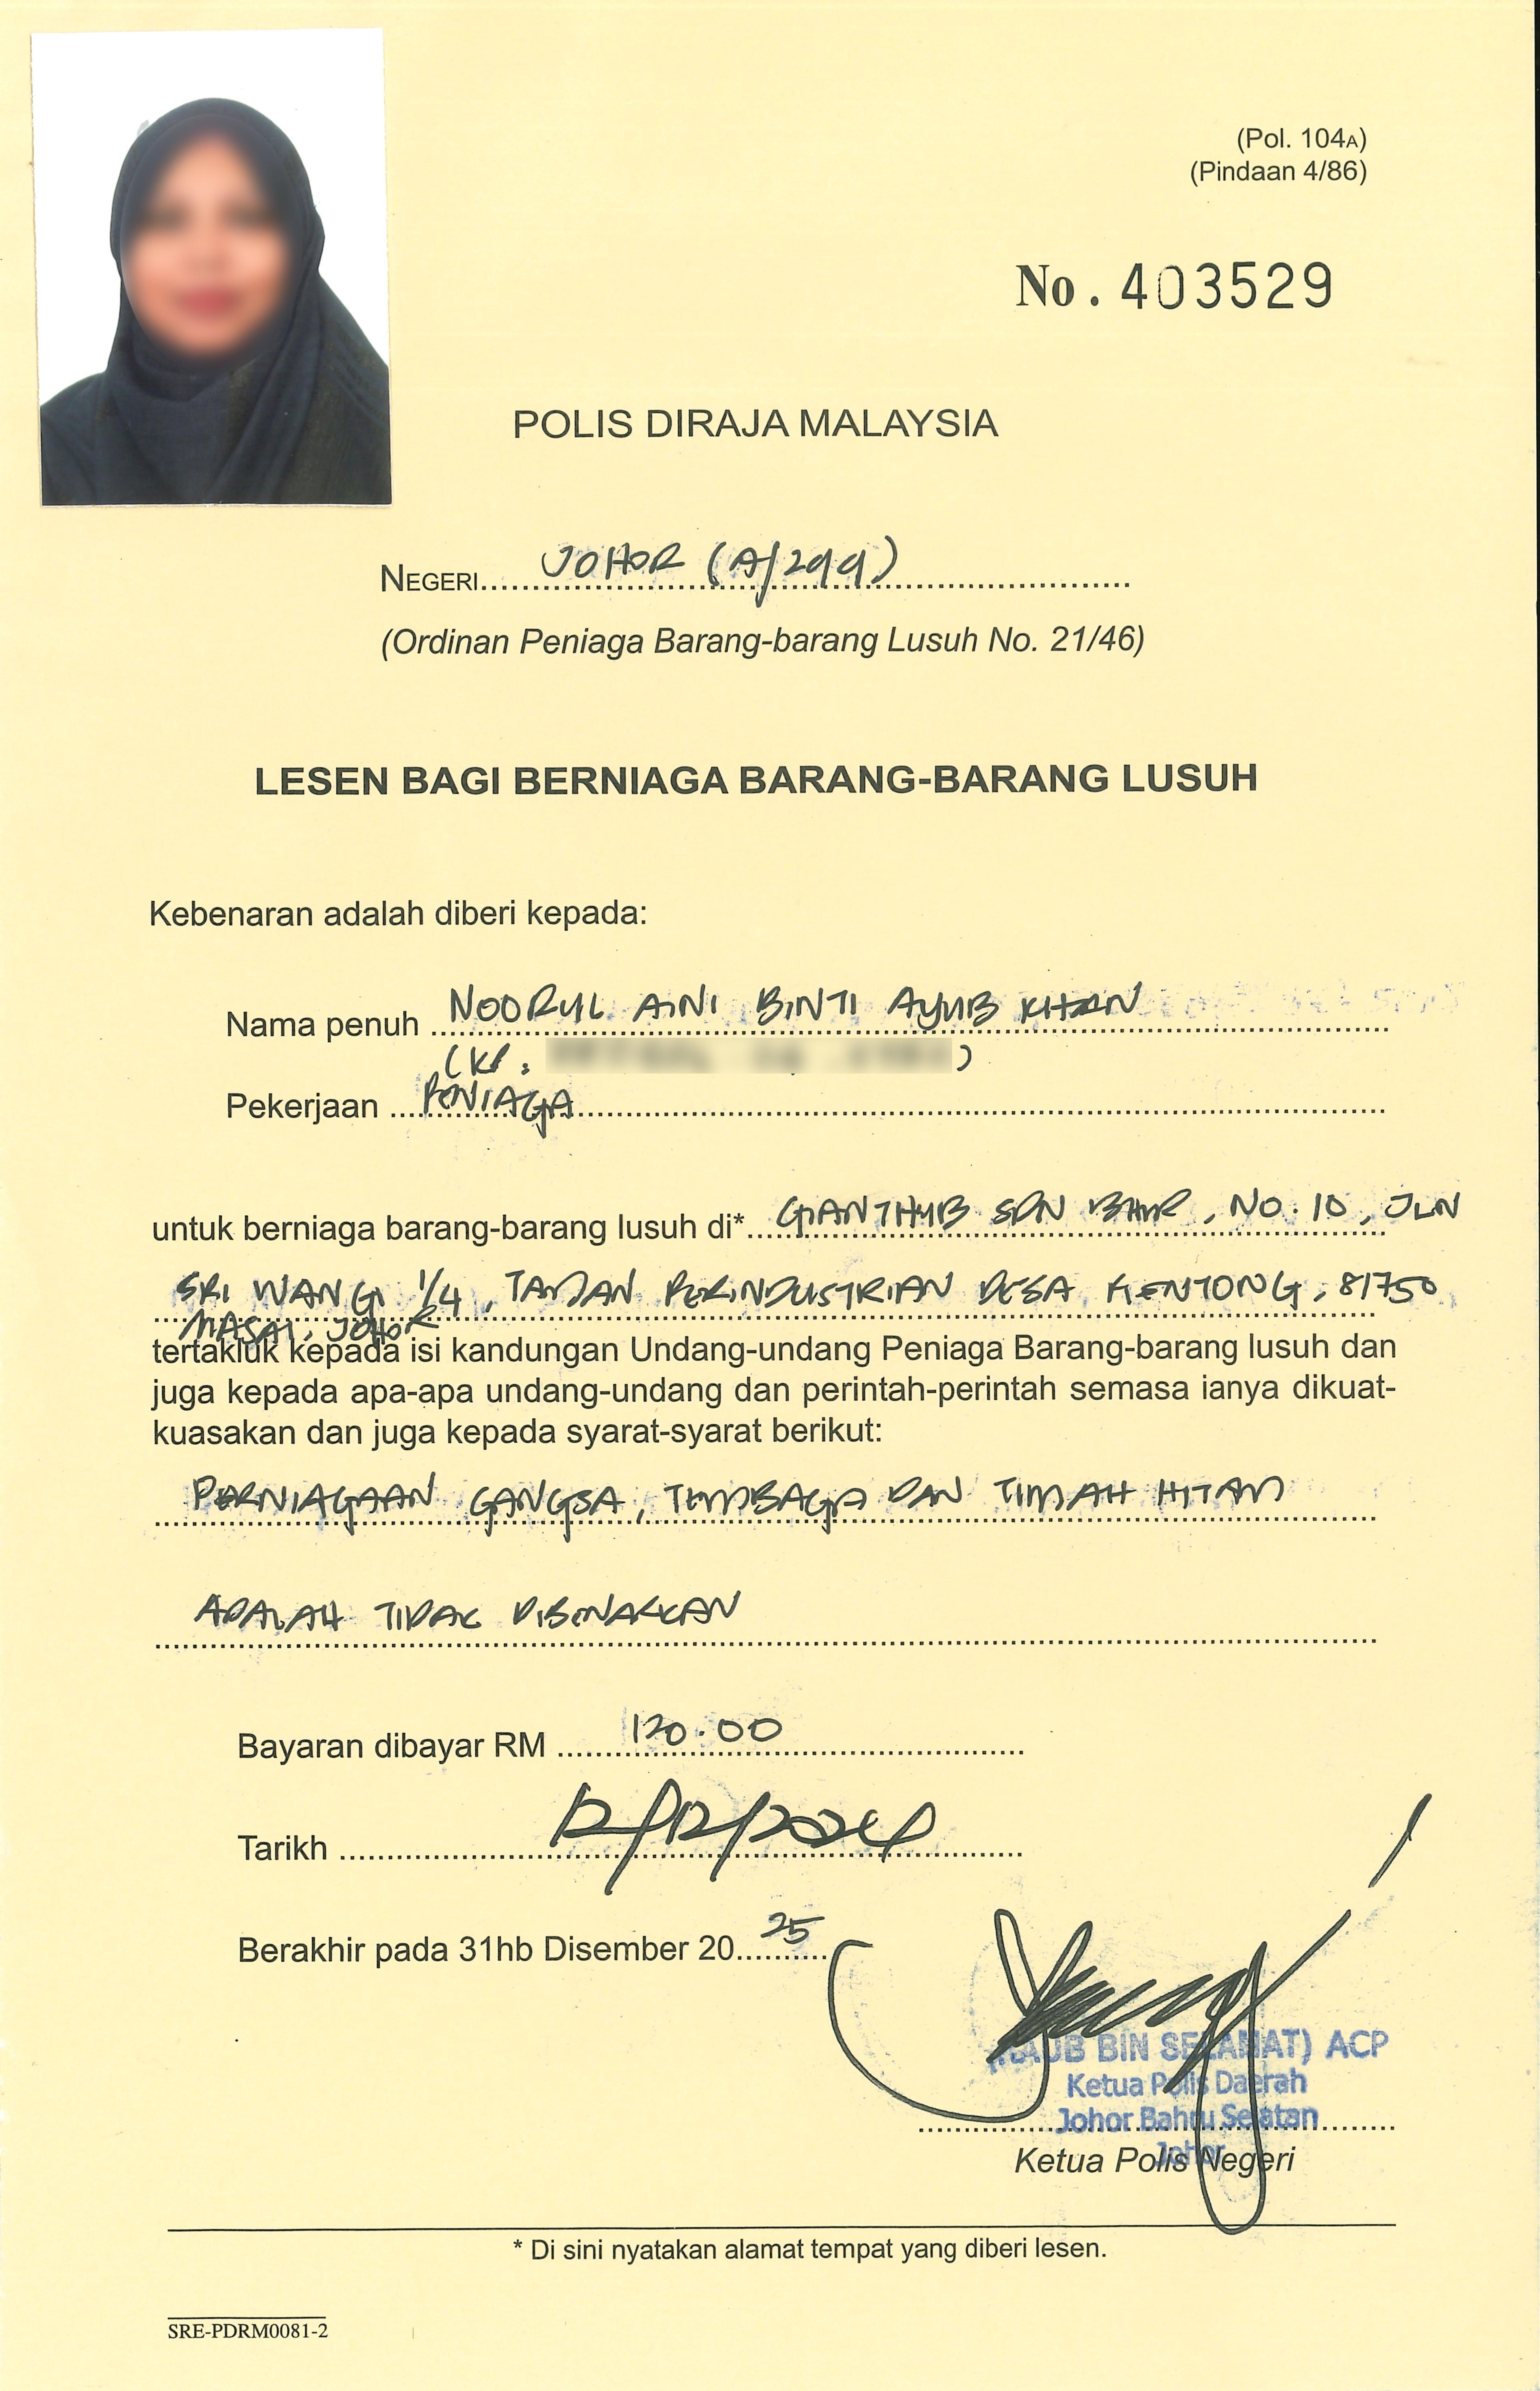 (Pol. 104A)
(Pindaan 4/86)
No. 403529
POLIS DIRAJA MALAYSIA
NEGERI JOHOR (A/299)
(Ordinan Peniaga Barang-barang Lusuh No. 21/46)
LESEN BAGI BERNIAGA BARANG-BARANG LUSUH
Kebenaran adalah diberi kepada:
Nama penuh NOORUL AINI BINTI AYUB KHAN
(KP: )
Pekerjaan PENIAGA
untuk berniaga barang-barang lusuh di* GIANTHUB SDN BHD, NO. 10, JLN
SRI WANGI 1/4, TAMAN PERINDUSTRIAN DESA KENTONG, 81750
MASAI, JOHOR
tertakluk kepada isi kandungan Undang-undang Peniaga Barang-barang lusuh dan
juga kepada apa-apa undang-undang dan perintah-perintah semasa ianya dikuat-
kuasakan dan juga kepada syarat-syarat berikut:
PERNIAGAAN GANGSA, TEMBAGA DAN TIMAH HITAM
ADALAH TIDAK DIBENARKAN
Bayaran dibayar RM 120.00
Tarikh 12/12/2024
Berakhir pada 31hb Disember 2025
BIN SELAMAT) ACP
Ketua Polis Daerah
Johor Bahru Selatan
Johor
Ketua Polis Negeri
* Di sini nyatakan alamat tempat yang diberi lesen.
SRE-PDRM0081-2